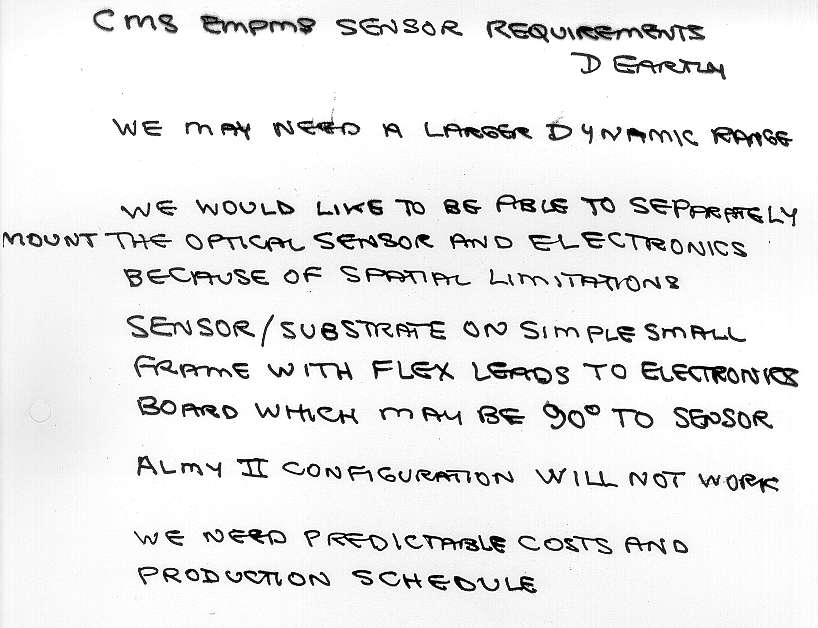 CMS EMPMS SENSOR REQUIREMENTS
D EARTLY
WE MAY NEED A LARGER DYNAMIC RANGE
WE WOULD LIKE TO BE ABLE TO SEPARATELY
MOUNT THE OPTICAL SENSOR AND ELECTRONICS
BECAUSE OF SPATIAL LIMITATIONS
SENSOR/SUBSTRATE ON SIMPLE SMALL
FRAME WITH FLEX LEADS TO ELECTRONICS
BOARD WHICH MAY BE 90° TO SENSOR
ALMY II CONFIGURATION WILL NOT WORK
WE NEED PREDICTABLE COSTS AND
PRODUCTION SCHEDULE